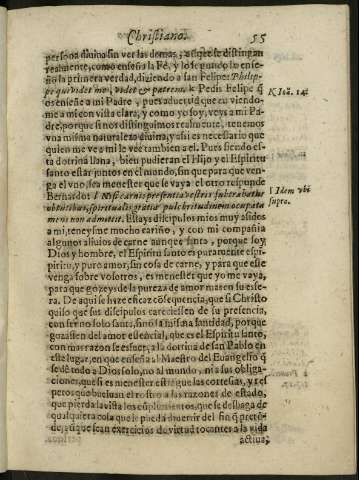 Christiano. 55
persona diuina sin ver las demas, aũque se distingan
realmente, como enseña la Fè, y lo segundo lo ense-
ñò la primera verdad, diziendo a san Felipe: Philip-
pe qui videt me, videt & patrem. k Pedis Felipe q̃
os enseñe a mi Padre, pues aduertid que en viendo-
me a mi con vista clara, y como yo soy, veys a mi Pa-
dre, porque si nos distinguimos realmente, tenemos
vna misma naturaleza diuina, y assi es necesario que
quien me vea mi le vee tambien a el. Pues siendo es-
ta dotrina llana, bien pudieran el Hijo y el Espiritu
santo estar juntos en el mundo, sin que para que ven-
ga el vno sea menester que se vaya el otro responde
Bernardo: l Nisi carnis presentia vestris subtrahatur
obtutibus, spiritualis gratiæ pulchritudinem occupata
mens non admittit. Estays discipulos mios muy asidos
a mi, teneysme mucho cariño, y con mi compañia
algunos aliuios de carne aunque santa, porque soy
Dios y hombre, el Espiritu santo es puramente espi-
piritu, y puro amor, sin cosa de carne, y para que este
venga sobre vosotros, es menester que yo me vaya,
para que gozeys de la pureza de amor mas en su esfe-
ra. De aqui se haze eficaz cõsequencia, que si Christo
quiso que sus dicipulos careciessen de su presencia,
con ser no solo santa, sino la misma santidad, porque
gozassen del amor essencial, que es el Espiritu santo,
con mas razon se esfuerça la dotrina de san Pablo en
este lugar, en que enseña al Maestro del Euangelio q̃
se dè todo a Dios solo, no al mundo, ni a sus obliga-
ciones, que si es menester estè que las cortesias, y res
petos que bueluan el rostro a las razones de estado,
que pierda la vista los cũplimientos, que se deshaga de
qualquiera cosa que le pueda diuertir del fin q̃ preten-
de, aũque sean exercicios de virtud tocantes a la vida
actiua,
K Ioã. 14.
l Idem vbi
supra.